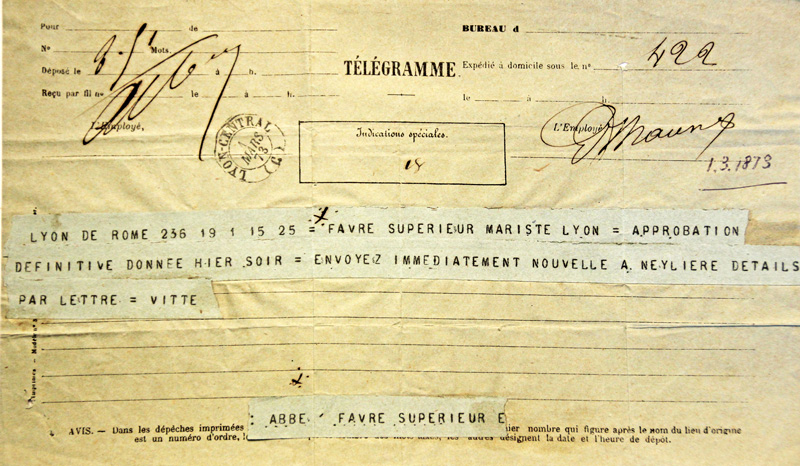 Pour de
BUREAU d
N° Mots.
422
Déposé le à h.
TÉLÉGRAMME.
Expédié à domicile sous le n°
Reçu par fil n° le à h.
le à h.
L'Employé,
LYON-CENTRAL
1
MARS
73
Indications spéciales.
18
L'Employé
1.3.1873
LYON DE ROME 236 19 1 15 25 = FAVRE SUPERIEUR MARISTE LYON = APPROBATION
DEFINITIVE DONNEE HIER SOIR = ENVOYEZ IMMEDIATEMENT NOUVELLE A NEYLIERE DETAILS
PAR LETTRE = VITTE
: ABBE FAVRE SUPERIEUR E
AVIS. — Dans les dépêches imprimées ier nombre qui figure après le nom du lieu d'origine
est un numéro d'ordre, le les autres désignent la date et l'heure de dépôt.